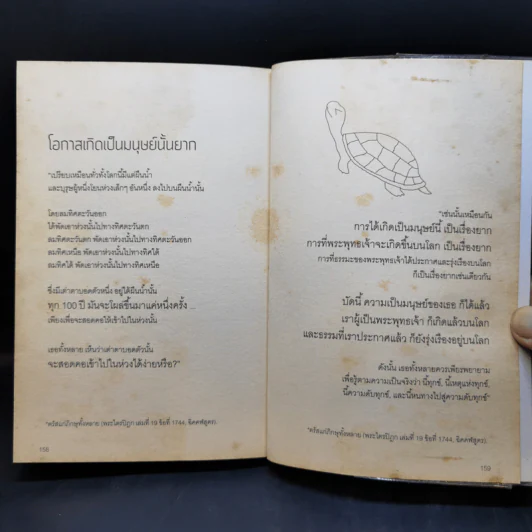 โอกาสเกิดเป็นมนุษย์นั้นยาก
"เปรียบเหมือนทั่วทั้งโลกนี้มีแต่ผืนน้ำ
และบุรุษผู้หนึ่งโยนห่วงเล็กๆ อันหนึ่ง ลงไปบนผืนน้ำนั้น
โดยลมทิศตะวันออก
ได้พัดเอาห่วงนั้นไปทางทิศตะวันตก
ลมทิศตะวันตก พัดเอาห่วงนั้นไปทางทิศตะวันออก
ลมทิศเหนือ พัดเอาห่วงนั้นไปทางทิศใต้
ลมทิศใต้ พัดเอาห่วงนั้นไปทางทิศเหนือ
ซึ่งมีเต่าตาบอดตัวหนึ่ง อยู่ใต้ผืนน้ำนั้น
ทุก 100 ปี มันจะโผล่ขึ้นมาแค่หนึ่งครั้ง ...
เพียงเพื่อจะสอดคอให้เข้าไปในห่วงนั้น
เธอทั้งหลาย เห็นว่าเต่าตาบอดตัวนั้น
จะสอดคอเข้าไปในห่วงได้ง่ายหรือ?"
"ตรัสแก่ภิกษุทั้งหลาย (พระไตรปิฎก เล่มที่ 19 ข้อที่ 1744, ฉิคคฬสูตร).
158
"เช่นนั้นเหมือนกัน
การได้เกิดเป็นมนุษย์นี้ เป็นเรื่องยาก
การที่พระพุทธเจ้าจะเกิดขึ้นบนโลก เป็นเรื่องยาก
การที่ธรรมะของพระพุทธเจ้าได้ประกาศและรุ่งเรืองบนโลก
ก็เป็นเรื่องยากเช่นเดียวกัน
บัดนี้ ความเป็นมนุษย์ของเธอ ก็ได้แล้ว
เราผู้เป็นพระพุทธเจ้า ก็เกิดแล้วบนโลก
และธรรมที่เราประกาศแล้ว ก็ยังรุ่งเรืองอยู่บนโลก
ดังนั้น เธอทั้งหลายควรเพียรพยายาม
เพื่อรู้ตามความเป็นจริงว่า นี้ทุกข์, นี้เหตุแห่งทุกข์,
นี้ความดับทุกข์, และนี้หนทางไปสู่ความดับทุกข์"
"ตรัสแก่ภิกษุทั้งหลาย (พระไตรปิฎก เล่มที่ 19 ข้อที่ 1744, ฉิคคฬสูตร).
159